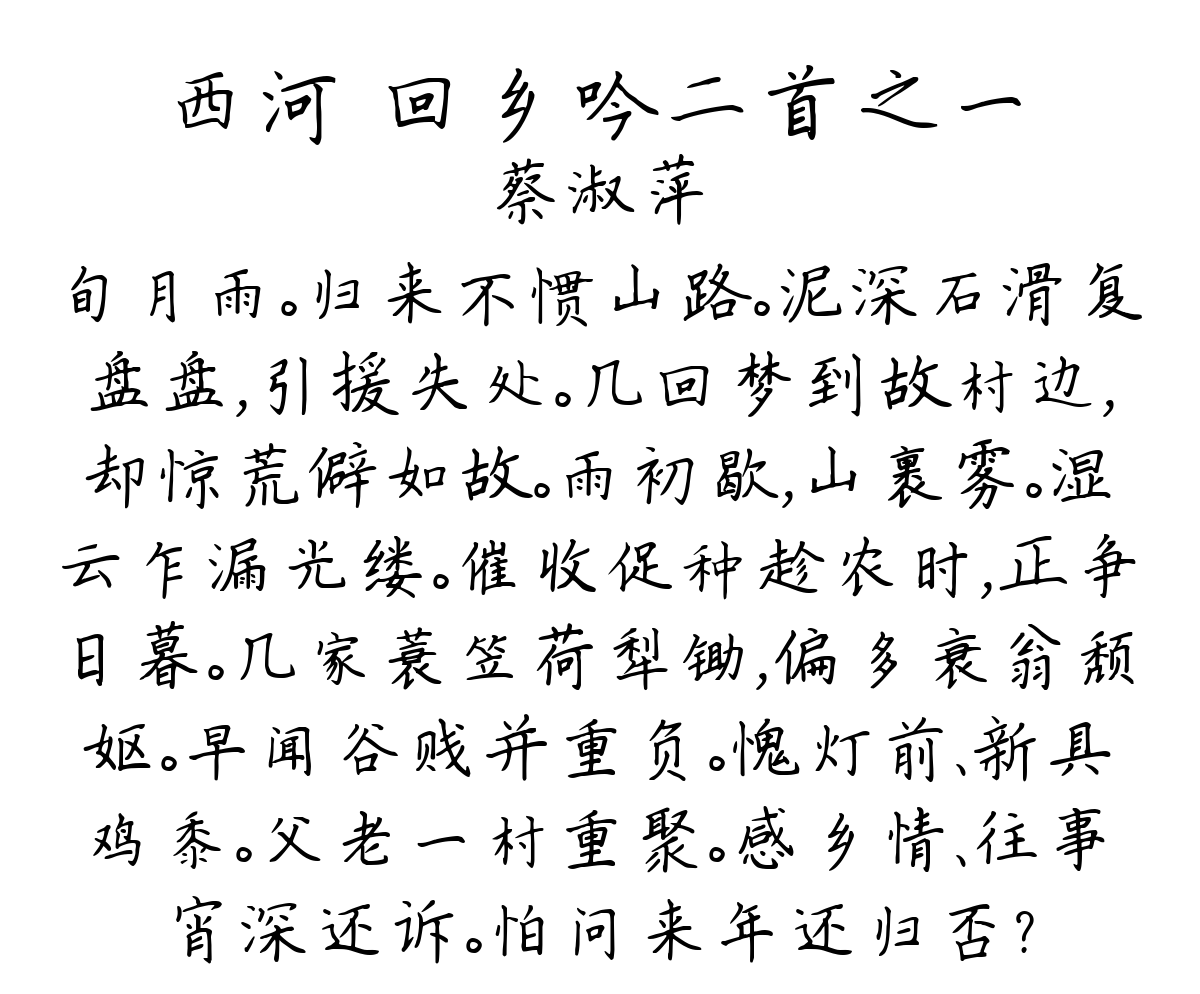 西河 回乡吟二首之一
蔡淑萍
旬月雨。归来不惯山路。泥深石滑复
盘盘,引援失处。几回梦到故村边,
却惊荒僻如故。雨初歇,山裹雾。湿
云乍漏光缕。催收促种趁农时,正争
日暮。几家蓑笠荷犁锄,偏多衰翁颓
妪。早闻谷贱并重负。愧灯前、新具
鸡黍。父老一村重聚。感乡情、往事
宵深还诉。怕问来年还归否?